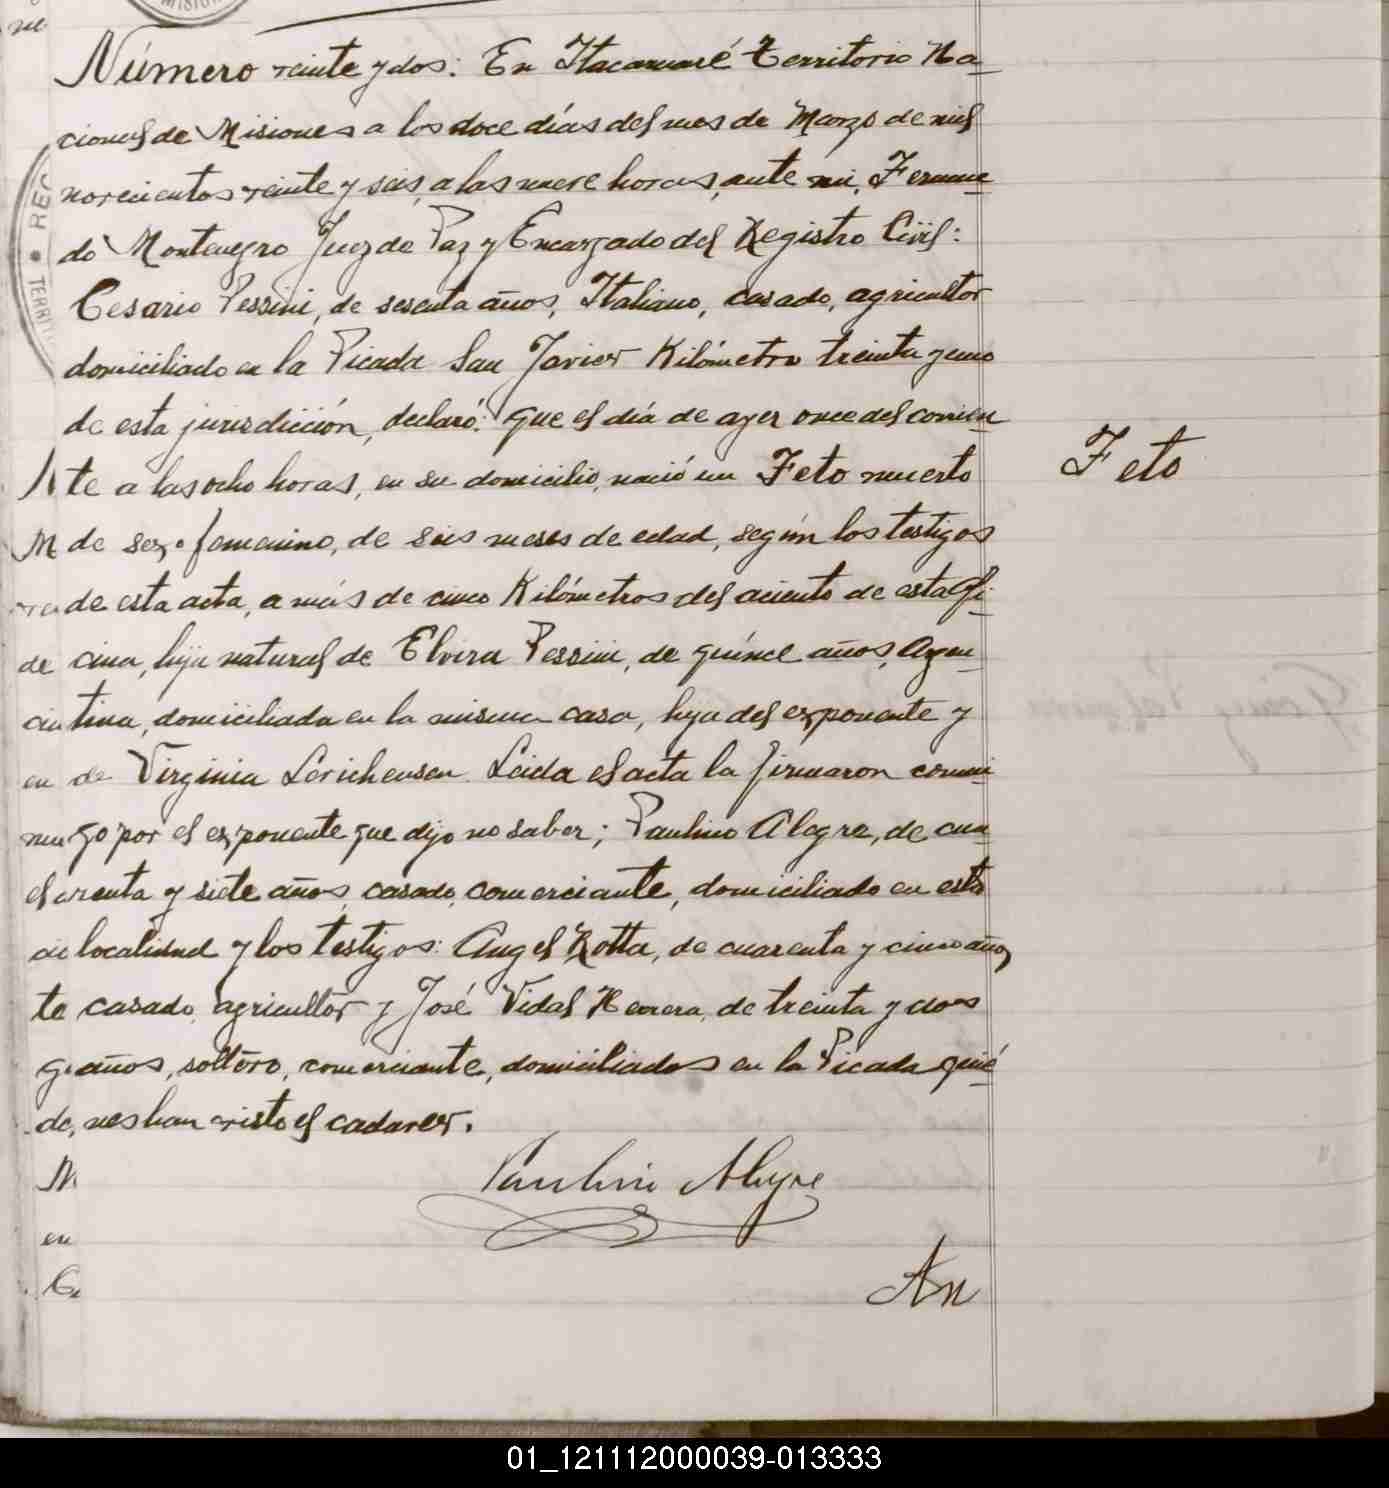 Número veinte y dos: En Itacaruaré Territorio Na-
cional de Misiones a los doce días del mes de Marzo de mil
novecientos veinte y seis, a las nueve horas, ante mi, Fernan-
do Montenegro Juez de Paz y Encargado del Registro Civil:
Cesario Pessini, de sesenta años, Italiano, casado, agricultor
domiciliado en la Picada San Javier Kilómetro treinta y uno
de esta jurisdicción, declaró: que el día de ayer once del corrien-
te a las ocho horas, en su domicilio, nació un Feto muerto
Feto
de sexo femenino, de seis meses de edad, según los testigos
de esta acta, a más de cinco Kilómetros del aciento de esta Ofi-
cina, hija natural de Elvira Pessini, de quince años, Argen-
tina, domiciliada en la misma casa, hija del exponente y
de Virginia Lerichensen. Leida el acta la firmaron conmi-
go por el exponente que dijo no saber; Paulino Alegre, de cua-
renta y siete años, casado, comerciante, domiciliado en esta
localidad y los testigos: Angel Rotta, de cuarenta y cinco años,
casado, agricultor y José Vidal Herrera, de treinta y dos
años, soltero, comerciante, domiciliados en la Picada quié-
nes han visto el cadaver.
Paulino Alegre
An
01_121112000039-013333